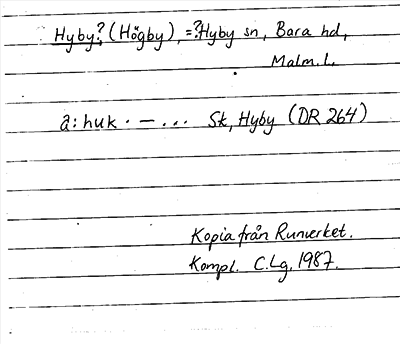 Hyby? (Högby), =? Hyby sn, Bara hd,
Malm. L.
â: huk · — ... Sk, Hyby (DR 264)
Kopia från Runverket.
Kompl. C.Lg, 1987.